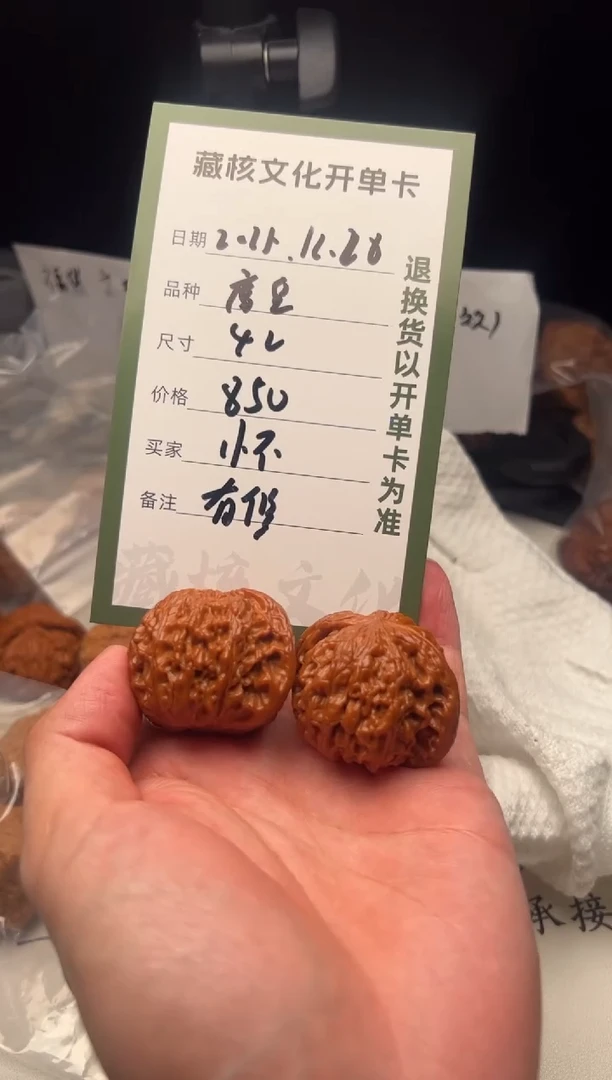 藏核文化开单卡
日期
品种
尺寸 42
价格 850
买家 小不
备注 有修
退换货以开单卡为准
藏核文化
承接